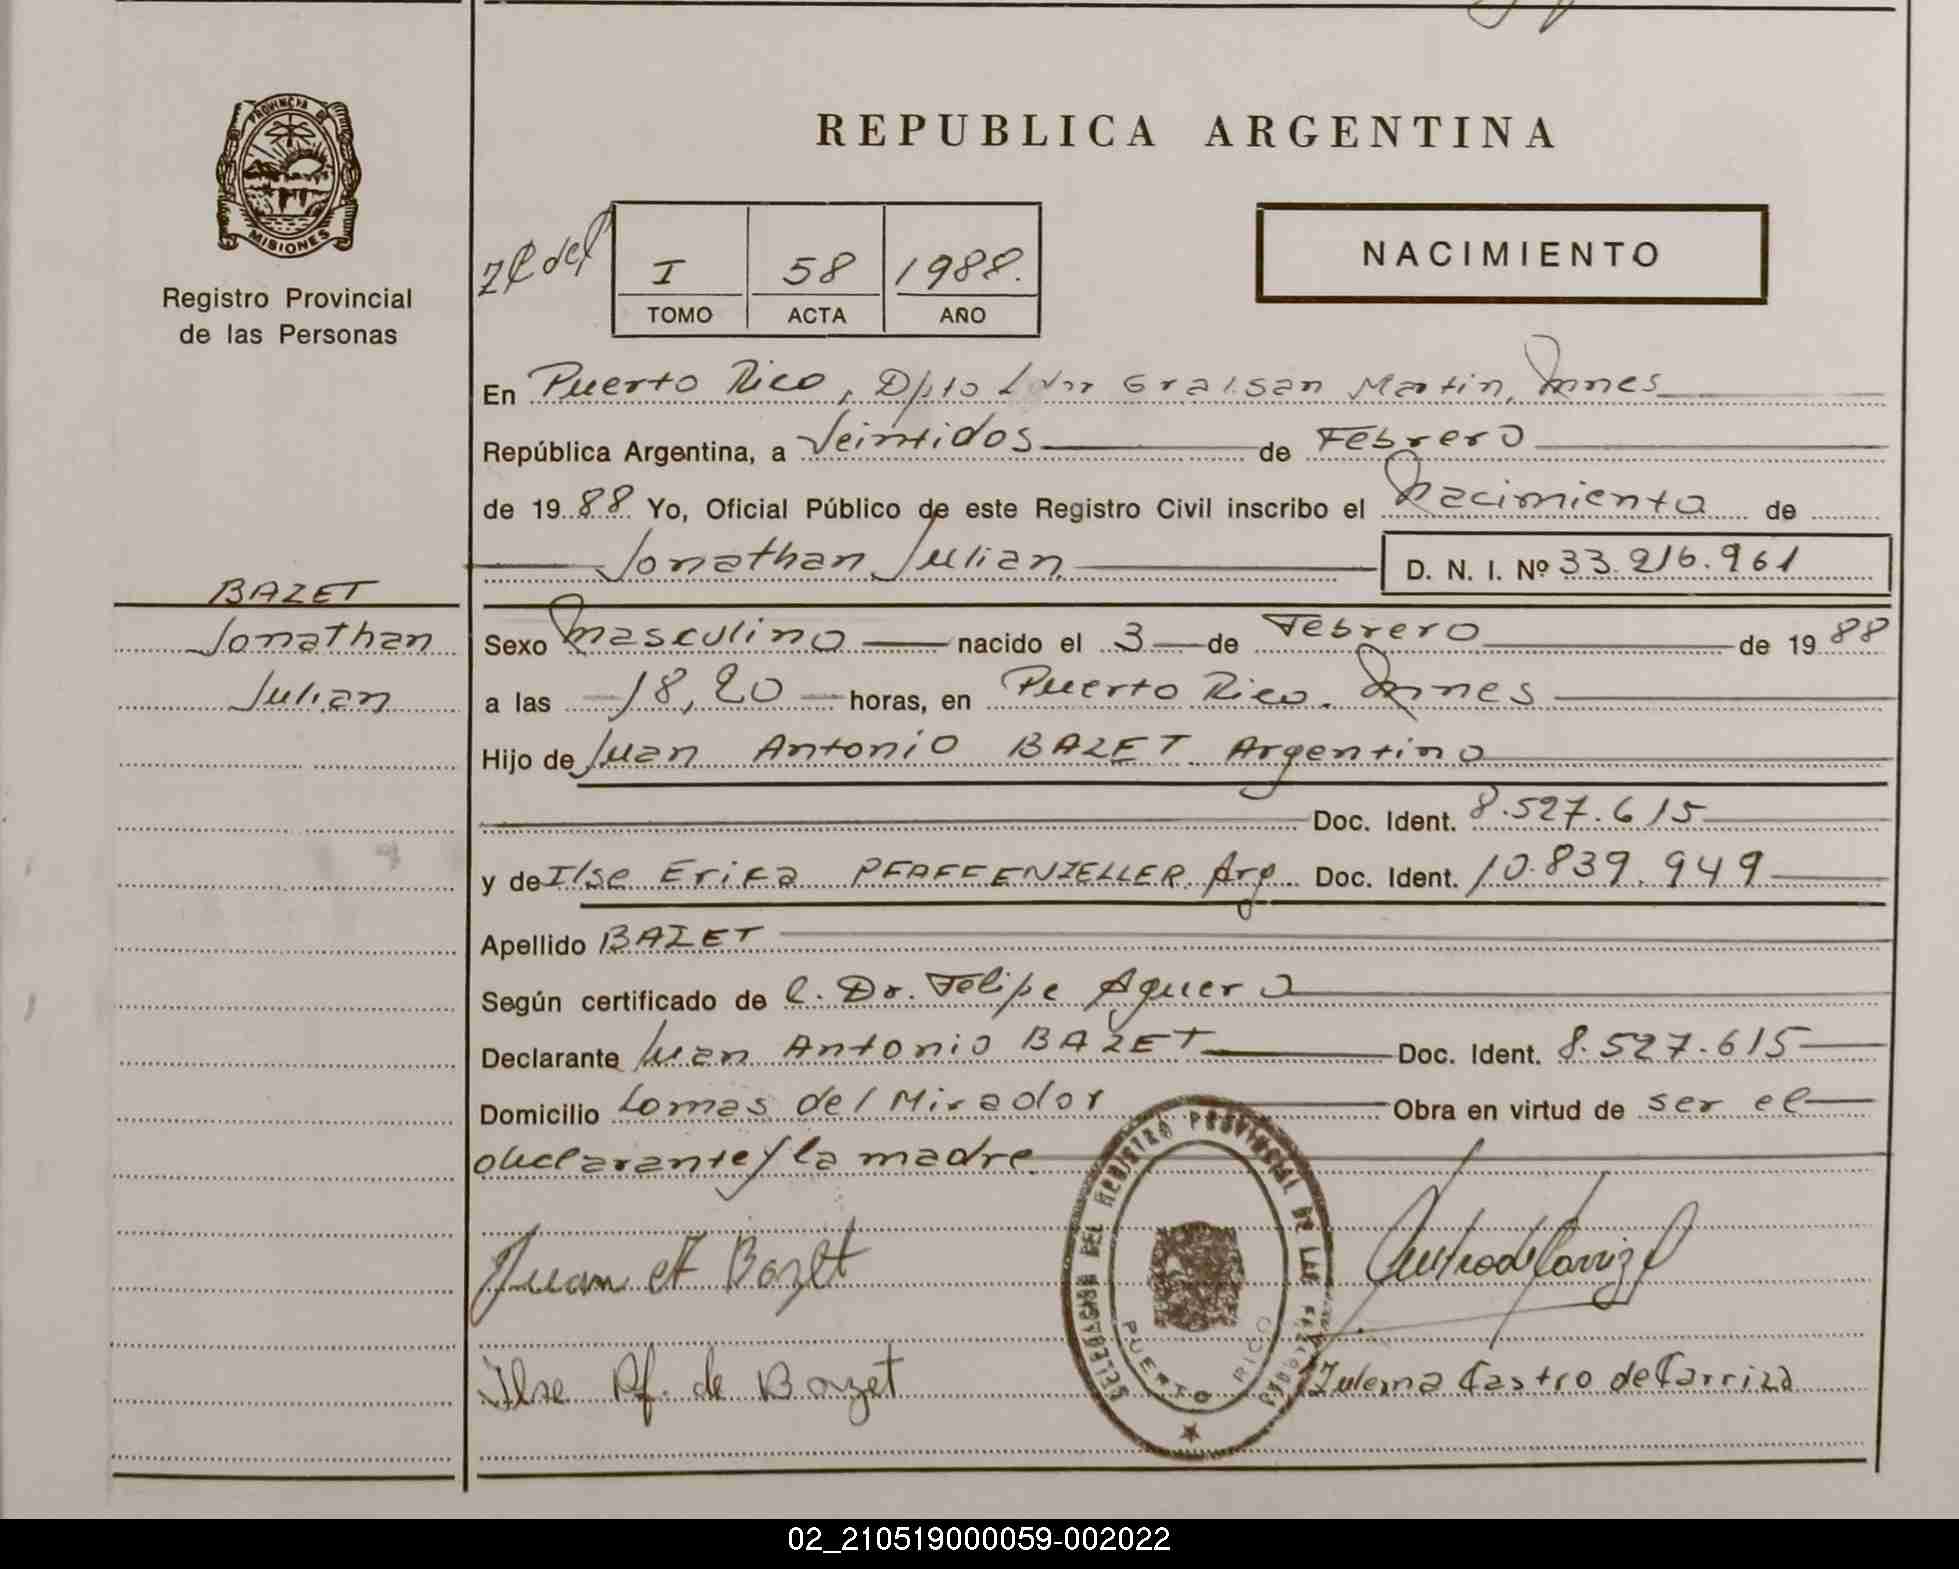 PROVINCIA DE
MISIONES
Registro Provincial
de las Personas
BAZET
Jonathan
Julian
REPUBLICA ARGENTINA
I 58 1988.
TOMO ACTA AÑO
NACIMIENTO
En Puerto Rico, Dpto Ldor Gral. San Martin, Mnes
República Argentina, a Veintidos de Febrero
de 1988 Yo, Oficial Público de este Registro Civil inscribo el Nacimiento de
Jonathan Julian D. N. I. Nº 33.216.961
Sexo Masculino nacido el 3 de Febrero de 1988
a las 18,20 horas, en Puerto Rico. Mnes
Hijo de Juan Antonio BAZET Argentino
Doc. Ident. 8.527.615
y de Ilse Erika PFAFFENZELLER. Arg Doc. Ident. 10.839.949
Apellido BAZET
Según certificado de l. Dr. Felipe Aguero
Declarante Juan Antonio BAZET Doc. Ident. 8.527.615
Domicilio Lomas del Mirador Obra en virtud de ser el
declarante y la madre
Juan A Bazet
Ilse Pf. de Bazet
DELEGACION DEL REGISTRO PROVINCIAL DE LAS
PUERTO RICO
Castro de Carrizo
Zulema Castro de Carrizo
02_210519000059-002022